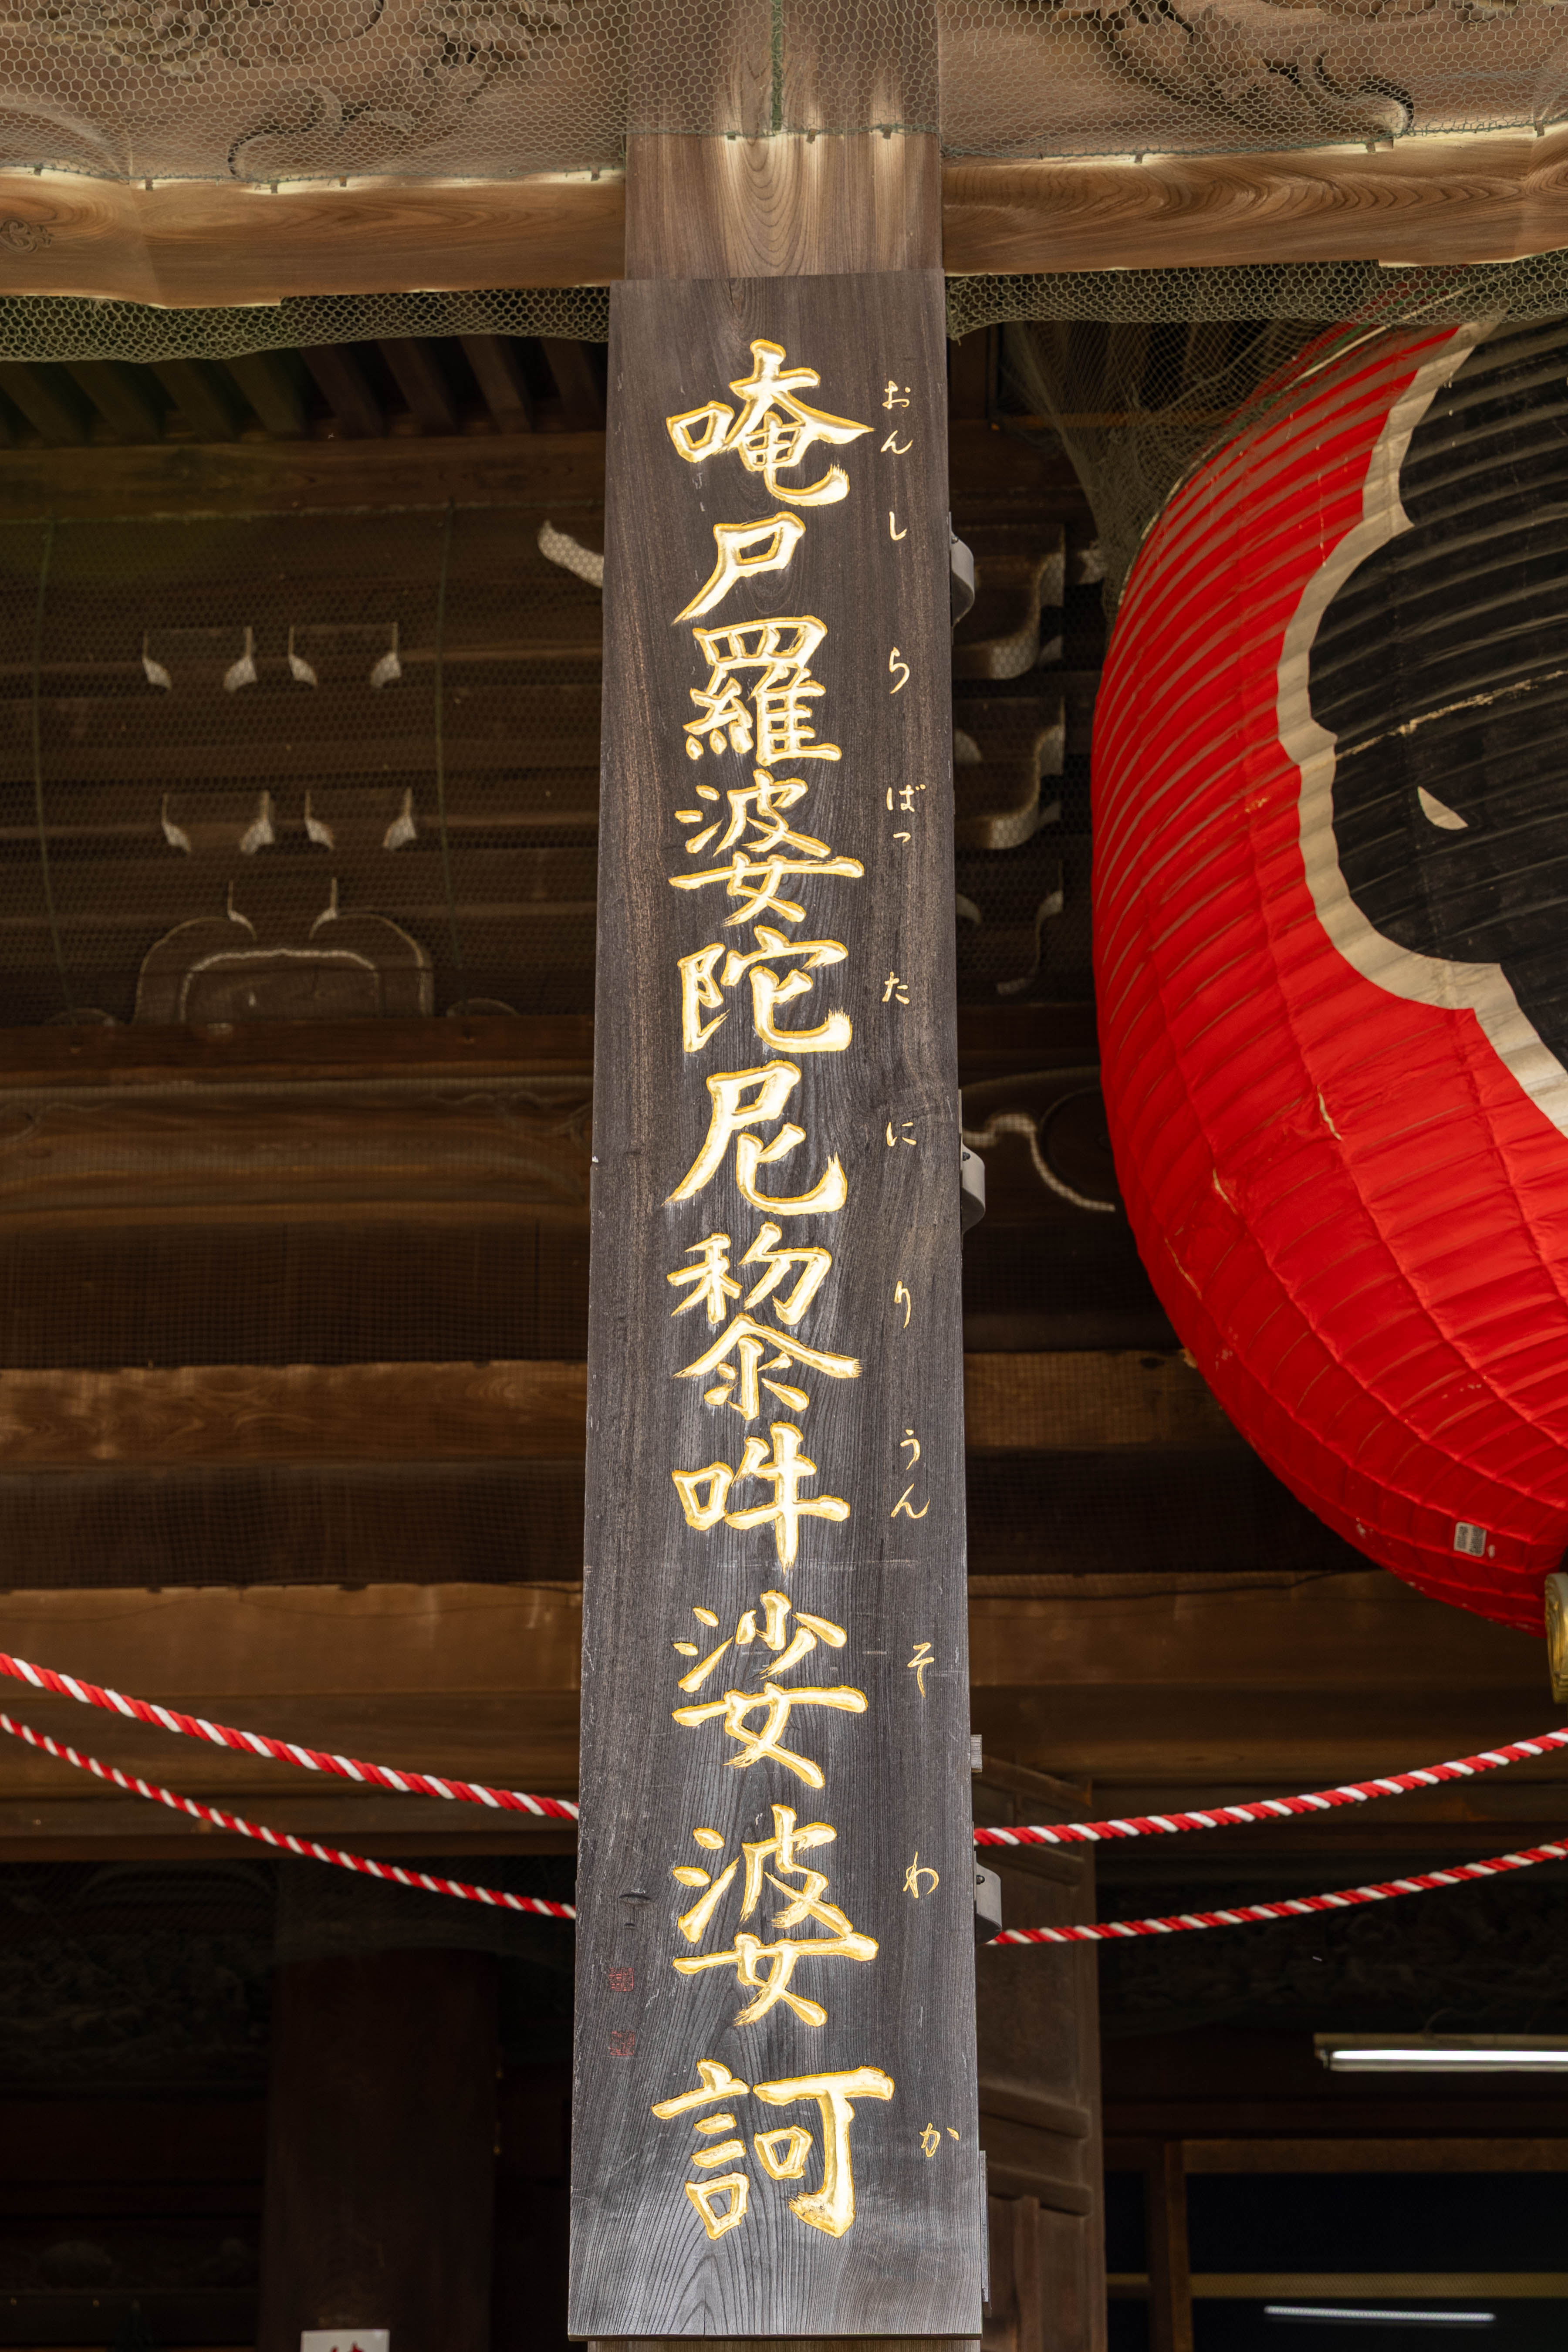 唵尸羅婆陀尼黎吽娑婆訶
おんしらばったにりうんそわか